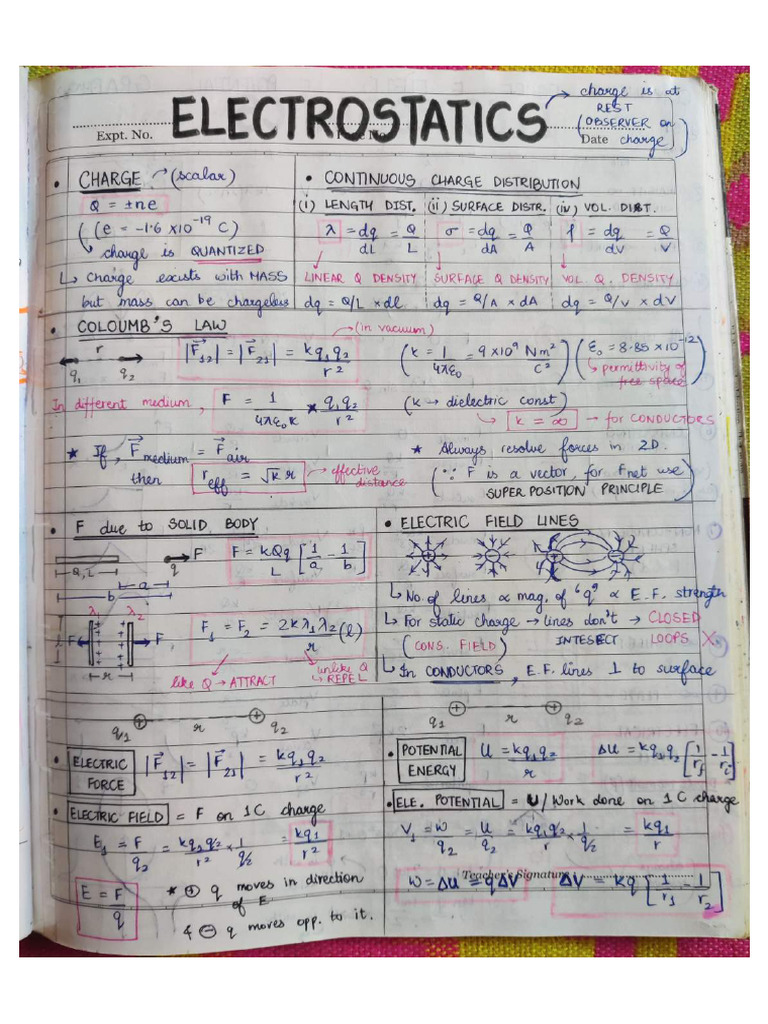 ELECTROSTATICS
charge is at
REST
(OBSERVER on
charge)
Expt. No.
Date
• CHARGE (scalar)
Q = ±ne
(e = -1.6 × 10⁻¹⁹ C)
charge is QUANTIZED
↳ Charge exists with MASS
but mass can be chargeless
• CONTINUOUS CHARGE DISTRIBUTION
(i) LENGTH DIST. (ii) SURFACE DISTR. (iv) VOL. DIST.
λ = dq/dL = Q/L σ = dq/dA = Q/A ρ = dq/dV = Q/V
LINEAR Q DENSITY SURFACE Q DENSITY VOL. Q. DENSITY
dq = Q/L × dl dq = Q/A × dA dq = Q/V × dV
• COLOUMB'S LAW
(in vacuum)
r
q₁ q₂
|F₁₂| = |F₂₁| = kq₁q₂/r² (k = 1/4πε₀ = 9 × 10⁹ Nm²/C²) (ε₀ = 8.85 × 10⁻¹²)
↳ permittivity of
free space
In different medium, F = 1/4πε₀K × q₁q₂/r² (K → dielectric const)
↳ K = ∞ → for CONDUCTORS
★ If, F medium = F air
then r eff = √K r → effective
distance
★ Always resolve forces in 2D.
(∵ F is a vector, for Fnet use
SUPER POSITION PRINCIPLE)
• F due to SOLID BODY
Q, L
a
b
q F
F = kQq/L [1/a - 1/b]
λ₁ λ₂
F F,
r
F₁ = F₂ = 2kλ₁λ₂/r (l)
like Q → ATTRACT
unlike Q
↳ REPEL
• ELECTRIC FIELD LINES
↳ No. of lines ∝ mag. of "q" ∝ E.F. strength
↳ For static charge → lines don't → CLOSED
(CONS. FIELD) INTESECT LOOPS X
↳ In CONDUCTORS, E.F. lines ⊥ to surface
q₁ r q₂
• ELECTRIC
FORCE
|F₁₂| = |F₂₁| = kq₁q₂/r²
q₁ r q₂
• POTENTIAL
ENERGY
U = kq₁q₂/r ΔU = kq₁q₂ [1/rf - 1/ri]
• ELECTRIC FIELD = F on 1C charge
E₁ = F/q₂ = kq₁q₂/r² × 1/q₂ = kq₁/r²
E = F/q
★ ⊕ q moves in direction
of E
& ⊖ q moves opp. to it.
• ELE. POTENTIAL = U/Work done on 1C charge
V₁ = W/q₂ = U/q₂ = kq₁q₂/r × 1/q₂ = kq₁/r
Teacher's Signature
W = ΔU = qΔV ΔV = kq [1/r₁ - 1/r₂]